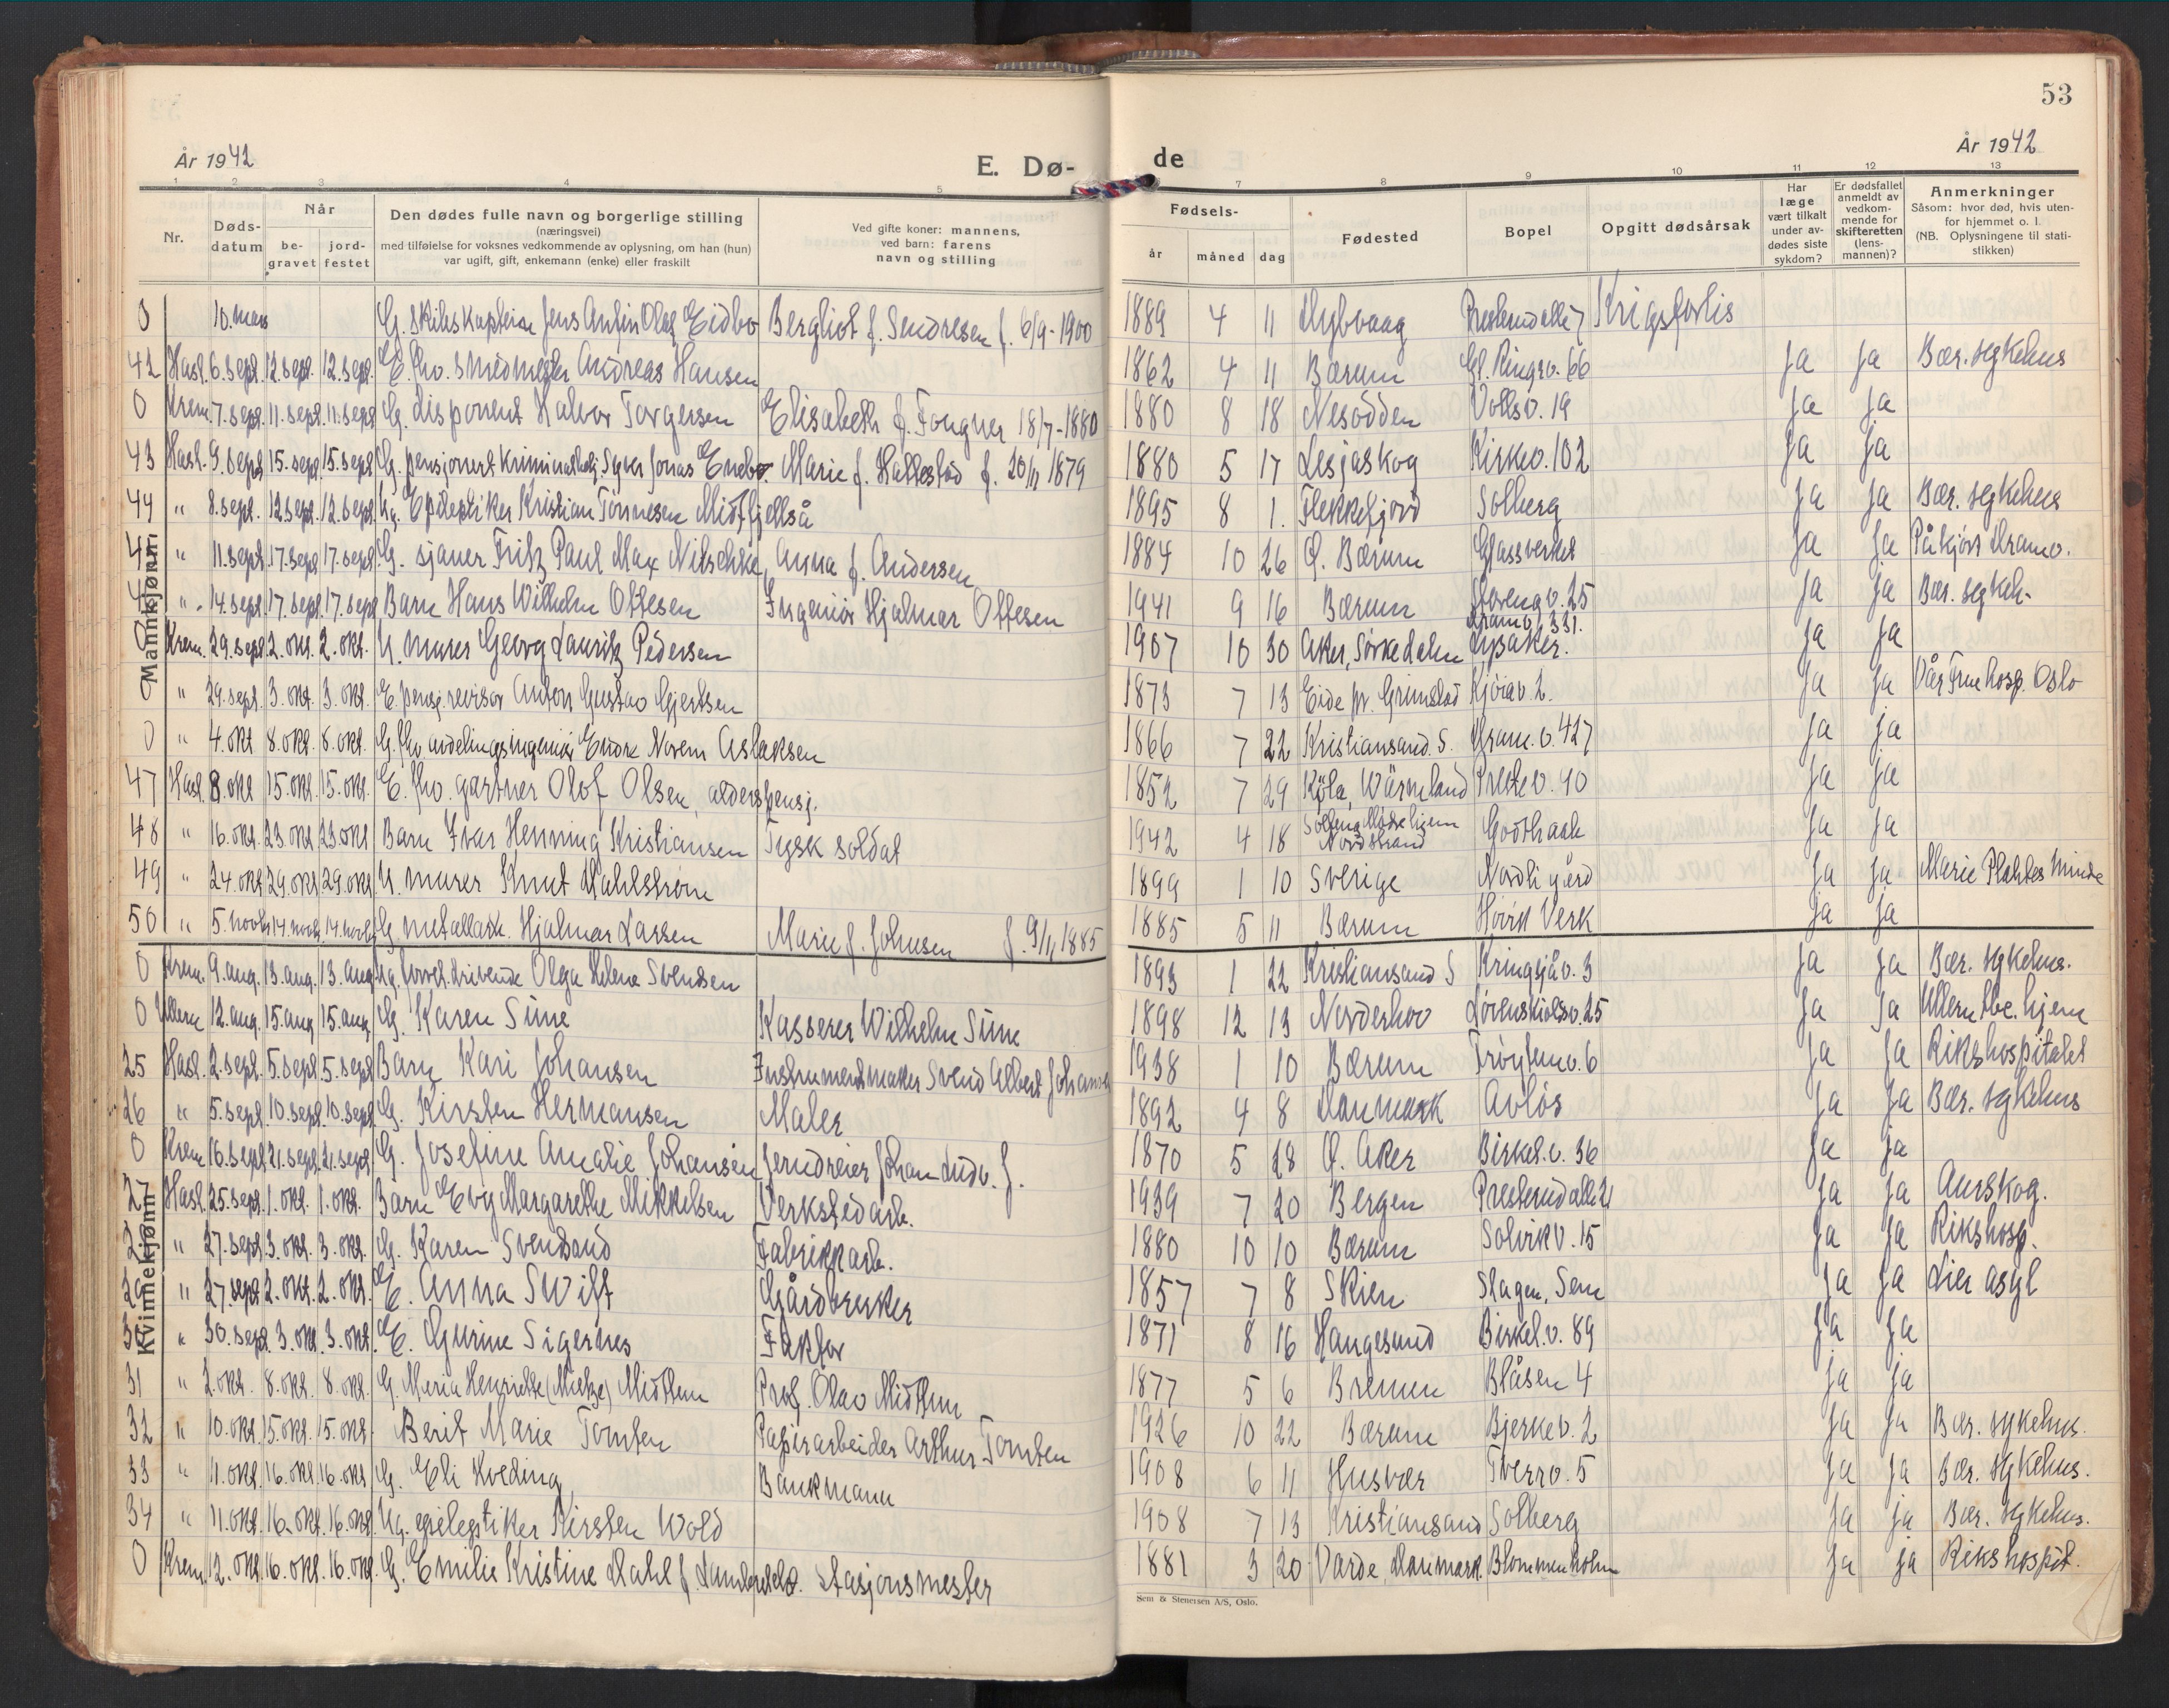 53
År 1942
E. Dø-
de
År 1942
1 2 3 4 5
6 7 8 9 10 11 12 13
Nr.
Døds-
datum
Når
be-
gravet
jord-
festet
Den dødes fulle navn og borgerlige stilling
(næringsvei)
med tilføielse for voksnes vedkommende av oplysning, om han (hun)
var ugift, gift, enkemann (enke) eller fraskilt
Ved gifte koner: mannens,
ved barn: farens
navn og stilling
Fødsels-
år
måned
dag
Fødested
Bopel
Opgitt dødsårsak
Har
læge
vært tilkalt
under av-
dødes siste
sykdom?
Er dødsfallet
anmeldt av
vedkom-
mende for
skifteretten
(lens-
mannen)?
Anmerkninger
Såsom: hvor død, hvis uten-
for hjemmet o. l.
(NB. Oplysningene til stati-
stikken)
Mannkjønn
0 10. mars G. skibskaptein Jens Anfin Olaf Eidbo Bergliot f. Sendresen f. 6/9-1900 1889 4 11 Dybvaag Presterudalle 7 Krigsforlis
42 Hasl. 6. sept. 12 sept. 12. sept. E. fhv. smedmester Andreas Hansen 1862 4 11 Bærum Gl. Ringv. 66 Ja Ja Bær. sykehus
0 Krem. 7. sept. 11. sept. 11. sept. G. disponent Halvor Torgersen Elisabeth f. Fougner 18/7-1880 1880 8 18 Nesodden Vollsv. 19 Ja Ja
43 Hasl. 9. sept. 15. sept. 15. sept. G. pensjonert kriminalbetj. Syver Jonas Enebo. Marie f. Hattestad f. 20/11 1879 1880 5 17 Lesjaskog Kirkev. 102 Ja Ja
44 " 8. sept. 12 sept. 12. sept. Ug. Epileptiker Kristian Tønnesen Midtfjellså 1895 8 1. Flekkefjord Solberg Ja Ja Bær. sykehus
45 " 11. sept. 17. sept 17. sept. G. sjauer Fritz Paul Max Nitschke, Anna f. Andersen 1884 10 26 Ø. Bærum Glassverket Ja Ja Påkjørt Dramv.
46 " 14. sept. 17. sept. 17. sept Barn Hans Wilhelm Ottesen Ingeniør Hjalmar Ottesen 1941 9 16 Bærum 25 Ja Ja Bær. sykeh.
0 Krem. 29. sept. 2. okt. 2. okt. U. murer Georg Lauritz Pedersen 1907 10 30 Aker, Sørkedalen Dramv. 331. Lysaker. Ja Ja
0 " 29. sept. 3. okt. 3. okt. E. pensj. revisor Anton Gustav Gjertsen 1873 7 13 Eide pr. Grimstad Kjøiav. 2. Ja Ja Vår Frue hosp. Oslo
0 " 4. okt 8. okt. 8. okt. G. fhv. avdelingsingeniør Norem Aslaksen 1866 7 22 Kristiansand. S. Dram. v. 427 Ja ja
47 Hasl. 8. okt 15. okt. 15. okt. E. fhv. gartner Olof Olsen, alderspensj. 1852 7 29 Köla, Wärmland Prestev. 40 Ja Ja
48 " 16. okt. 23. okt. 23 okt. Barn Ivar Henning Kristiansen Tysk soldat 1942 4 18 Mødrehjem Nordstrand Godthaab Ja Ja
49 " 24. okt 29. okt 29. okt U. murer Knut Dahlstrøm 1899 1 10 Sverige Nordli gård Ja Ja Marie Plahtes Minde
50 " 5. novbr 14. novbr. 14. novbr G. metallarb. Hjalmar Larsen Marie f. Johnsen f. 9/11 1885 1885 5 11 Bærum Høvik Verk Ja Ja
Kvinnekjønn
0 Krem. 9. aug. 13. aug. 13. aug Ug. Olga Helene Svendsen 1893 1 22 Kristiansand S Kringsjåv. 3 Ja Ja Bær. sykehus.
0 Ullern 12. aug. 15. aug 15. aug. G. Karen Sime Kasserer Wilhelm Sime 1898 12 13 Norderhov Løvenskioldsv. 25 Ja Ja Ullern tbc. hjem
25 Hasl. 2. sept. 5. sept. 5. sept Barn Kari Johansen Instrumentmaker Svend Albert Johansen 1938 1 10 Bærum 6 Ja Ja Rikshospitalet
26 " 5. sept. 10. sept. 10. sept G. Kirsten Hermansen Maler 1892 4 8 Danmark Avløs Ja Ja Bær. sykehus
0 Krem 16. sept 21. sept. 21. sept G. Josefine Amalie Johansen Jerndreier Johan Ludv. J. 1870 5 28 Ø. Aker Birkel. v. 36 Ja ja
27 Hasl. 25. sept. 1. okt. 1. okt. Barn Evy Margarethe Mikkelsen Verkstedarb. 1939 7 20 Bergen Presterudalle 21 Ja Ja Aurskog.
28 " 27. sept. 3. okt. 3. okt. G. Karen Svendsand Fabrikkarb. 1880 10 10 Bærum Solvikv. 15 Ja Ja Rikshosp.
29 " 27. sept 2. okt. 2. okt. E. Anna Swift Gårdbruker 1857 7 8 Skien Slagen, Sem Ja Ja Lier asyl
30 " 30. sept. 3. okt. 3. okt. E. Gurine Sigernes Faktor 1871 8 16 Haugesund Birkel. v. 89 Ja Ja
31 " 2. okt. 8. okt. 8. okt. G. Maria Henriette (Mietze) Midttun Prof. Olav Midttun 1877 5 6 Bremen Blåsen 4 ja ja
32 " 10. okt. 15. okt. 15. okt. Berit Marie Tomten Papirarbeider Arthur Tomten 1926 10 22 Bærum Bjerkev. 2 Ja Ja Bær. sykehus.
33 " 11. okt. 16. okt. 16. okt G. Eli Kveding Bankmann 1908 6 11 Husvær Tverrv. 5 Ja Ja Bær. sykehus.
34 " 11. okt. 16. okt. 16. okt. Ug. epileptiker Kirsten Wold 1908 7 13 Kristiansand Solberg Ja ja Bær. sykehus.
0 Krem. 12. okt. 16. okt. 16. okt. G. Emilie Kristine Dahl f. Stasjonsmester 1881 3 20 Varde, Danmark. Blommenholm Ja ja Rikshospit.
Sem & Stenersen A/S, Oslo.